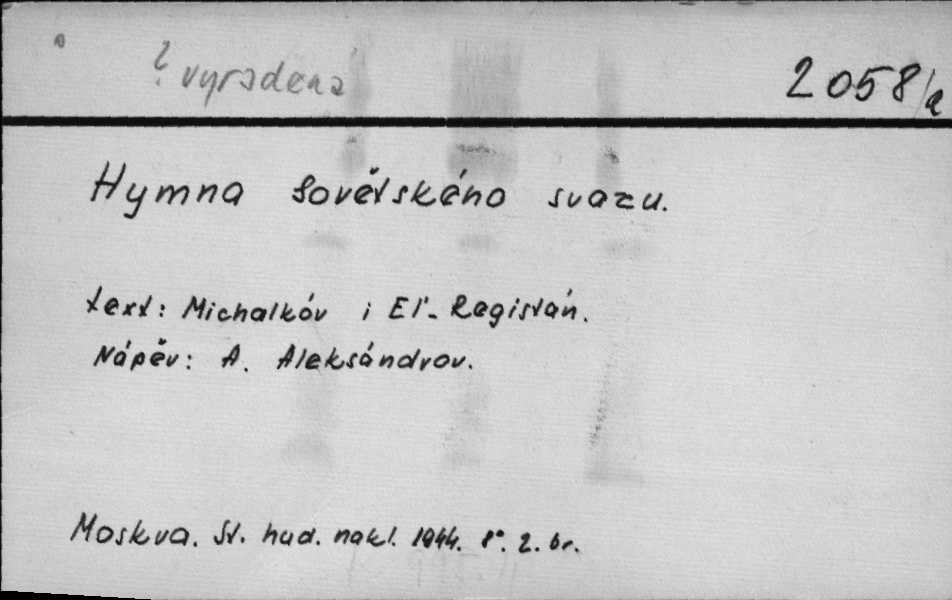 ? vyřadena
2058/a
Hymna Sovětského svazu.
text: Michalkóv i Eľ-Registán.
Nápěv: A. Aleksándrov.
Moskva. St. hud. nakl. 1944. 8°. 2. br.